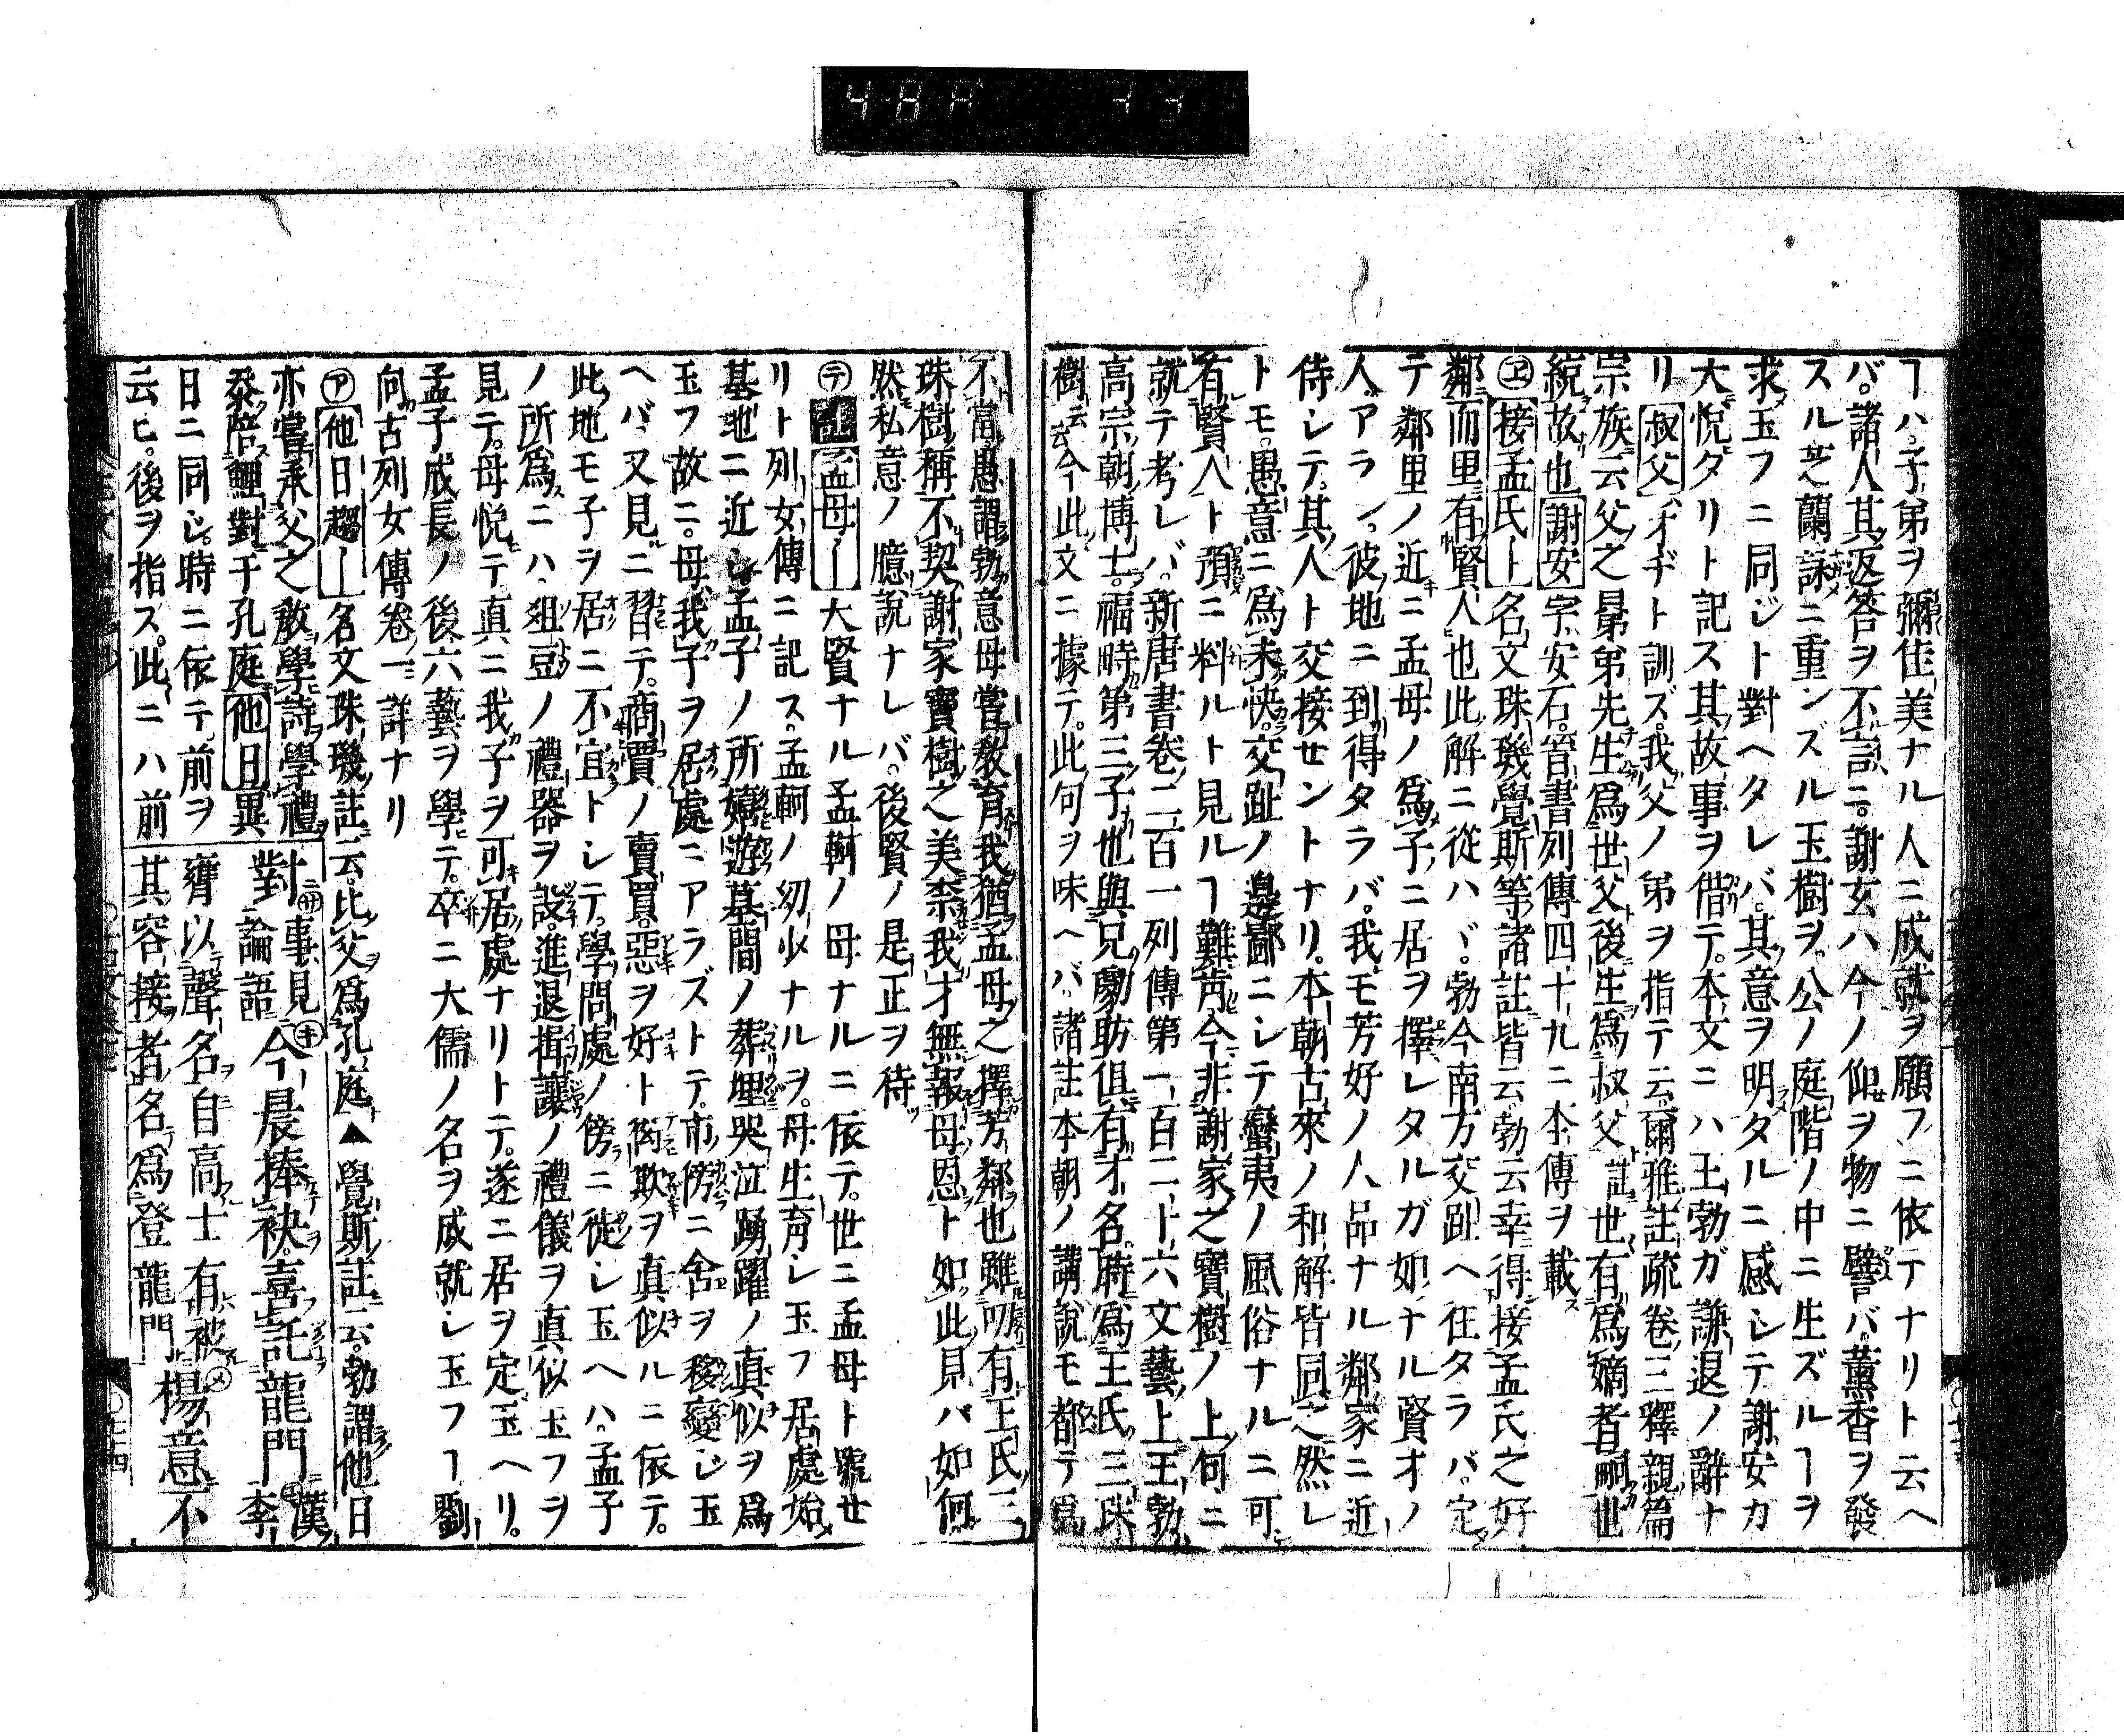 ヿハ子弟ヲ彌佳美ナル人ニ成就ヲ願フニ依テナリト云ヘ
バ。諸人其返答ヲ不言ニ。謝玄ハ今ノ仰ヲ物ニ譬バ。薫香ヲ發
スル芝蘭詠ニ重ンズル玉樹ヲ。公ノ庭階ノ中ニ生ズルヿヲ
求玉フニ同ジト對ヘタレバ。其意ヲ明タルニ感シテ謝安カ
大悦タリト記ス其故事ヲ借テ。本文ニハ王勃ガ謙退ノ辭ナ
リ叔父ハオヂト訓ズ。我父ノ弟ヲ指テ云。爾雅註疏卷三釋親篇
宗族云父之晜弟先生爲世父後生爲叔父註世有爲嫡者嗣世
統故也謝安字安石。晉書列傳四十九ニ本傳ヲ載
接孟氏ー名文珠璣覺斯等諸註皆云勃云幸得接孟氏之好
鄰而里有賢人也此解ニ從ハヾ。勃今南方交趾ヘ往タラバ。定
テ鄰里ノ近ニ孟母ノ爲子ニ居ヲ擇レタルガ如ナル賢才ノ
人アラン。彼地ニ到得タラバ。我モ芳好ノ人品ナル鄰家ニ近
侍シテ。其人ト交接セントナリ。本朝古來ノ和解皆同之然レ
トモ。愚意ニ爲未快。交趾ノ邊鄙ニシテ蠻夷ノ風俗ナルニ可
有賢人ト預ニ料ルト見ルヿ難肯今非謝家之寶樹ノ上句ニ
就テ考レバ。新唐書卷二百一列傳第一百二十六文藝上王勃
高宗朝博士。福畤第三子也與兄勮助俱有才名。時爲王氏三珠
樹云云今此文ニ據テ。此句ヲ味ヘバ。諸註本朝ノ講說モ都テ爲
不當愚謂勃意母嘗敎育我猶孟母之擇芳鄰也雖叨有王氏三
珠樹稱不契謝家寶樹之美柰我才無報母恩ト如此見バ如何
然私意ノ臆說ナレバ。後賢ノ是正ヲ待
テ註孟母ー大賢ナル孟軻ノ母ナルニ依テ。世ニ孟母ト號せ
リト列女傳ニ記ス。孟軻ノ幼少ナルヲ。母生育シ玉フ居處始
墓地ニ近シ。孟子ノ所嬉遊墓間ノ葬埋哭泣踴躍ノ真似ヲ爲
玉フ故ニ。母我子ヲ居處ニアラズトテ。市傍ニ舍ヲ移變ジ玉
ヘバ。又見ニ習テ。商賈ノ賣買。惡ヲ好ト衒欺ヲ真似ルニ依テ。
此地モ子ヲ居ニ不宜トシテ。學問處ノ傍ニ徙シ玉ヘハ。孟子
ノ所爲ニハ。俎豆ノ禮器ヲ設。進退揖讓ノ禮儀ヲ真似玉フヲ
見テ。母悦テ真ニ我子ヲ可居處ナリトテ。遂ニ居ヲ定玉ヘリ。
孟子成長ノ後六藝ヲ學テ。卒ニ大儒ノ名ヲ成就シ玉フヿ劉
向古列女傳卷一詳ナリ
ア他日趨ー名文珠璣註云。比父爲孔庭▲覺斯註云。勃謂他日
亦嘗承父之敎學詩學禮
忝陪鯉對于孔庭他日異
日ニ同シ。時ニ依テ前ヲ
云ヒ。後ヲ指ス。此ニハ前
對事見論語今晨捧袂。喜託龍門漢李
膺以聲名自高士有被
其容接者名爲登龍門楊意不